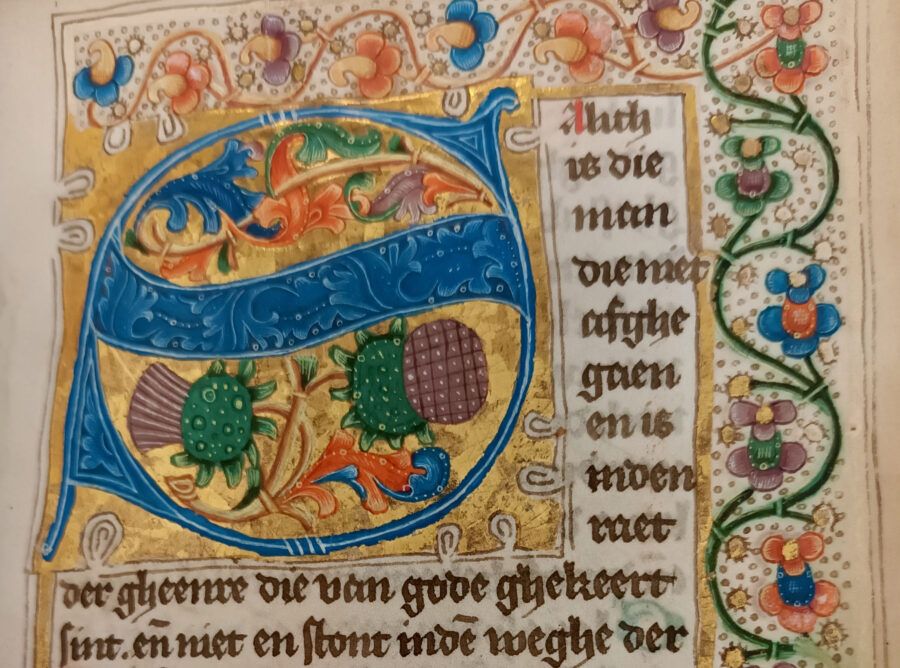 S
Alich
is die
man
die niet
afghe
gaen
en is
inden
raet
der gheenre die van gode ghekeert
sint. en̄ niet en stont indē weghe der